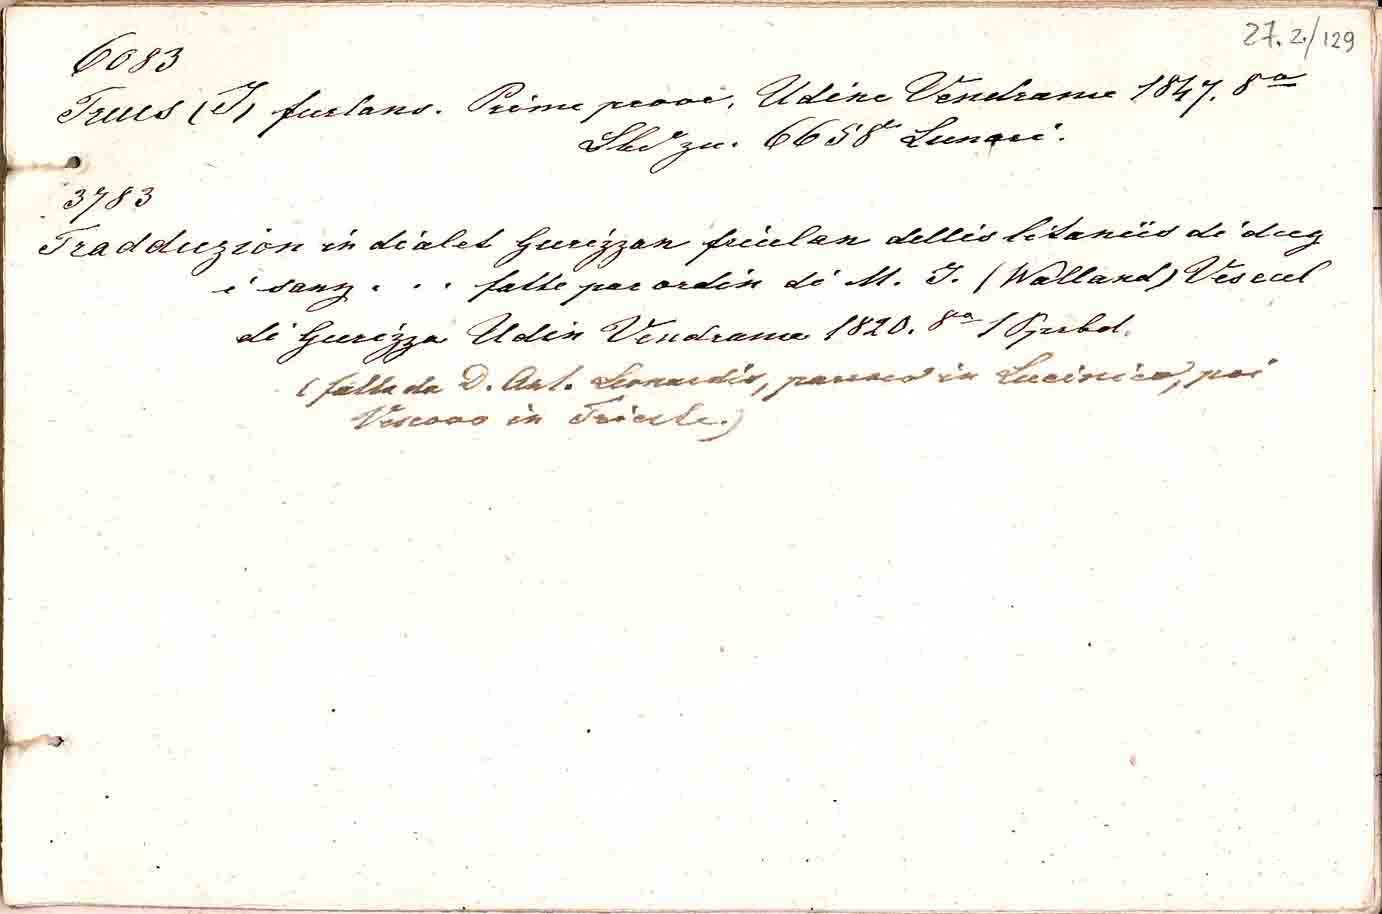 27.2./129
6083
Trucs (I) furlans. Prime prove, Udine Vendrame 1847. 8°
zu. 6658 Lunari.
3783
Tradduzion in dialet Gurizzan friulan dellis litaniis di dug
i sanz . . . fatte par ordin di M. I. (Walland) Vescul
di Gurizza Udin Vendrame 1820. 8°
(fatta da D. Ant. Leonardis, parroco in Lucinico, poi
Vescovo in Trieste.)